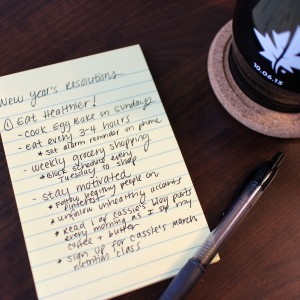 New Year's Resolutions
① Eat Healthier!
- cook Egg Bake on Sundays
- eat every 3-4 hours
* Set alarm reminder on phone
- weekly grocery shopping
* Block schedule every
Tuesday to shop
- stay motivated
* Follow healthy people on
Pinterest
* unfollow unhealthy accounts
* Read 1 of Cassie's blog posts
every morning as I sip my
coffee + butter
* sign up for Cassie's March
nutrition class
10.06.13